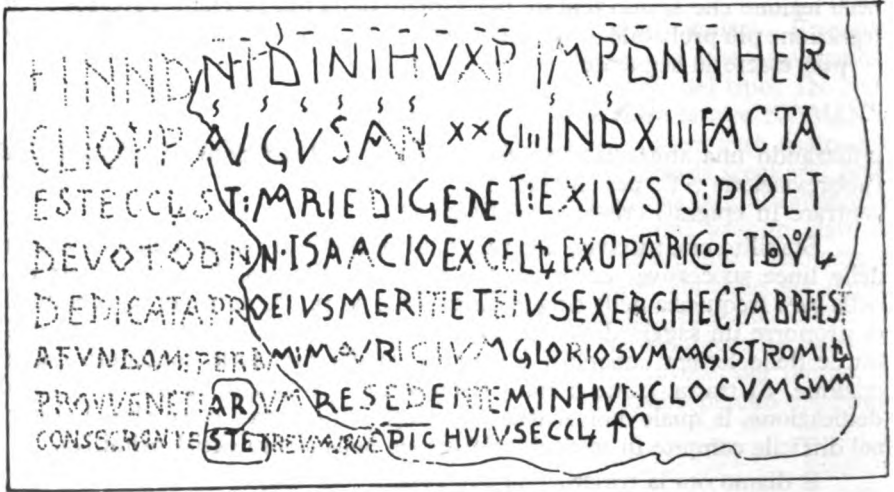 +INNDN̄I D̄INIHVXP̄ IMPD̄NNHER
CLIOPP AVGVSAN XXVIIII IND XIIIFACTA
ESTECCLST:MARIEDIGENET:EXIVSS:PIOET
DEVOTODNN·ISAACIOEXCELL EXCPATRICOET
DEDICATAPROEIVSMERITIETEIVSEXERCHECFABRNEST
AFVNDAM:PERBM:MAVRICIVMGLORIOSVMMAGISTROMIL
PROVVENETIARVMRESEDENTEMINHVNCLOCVMSVVM
CONSECRANTESTETREVMAVROEPICHVIVSECCL